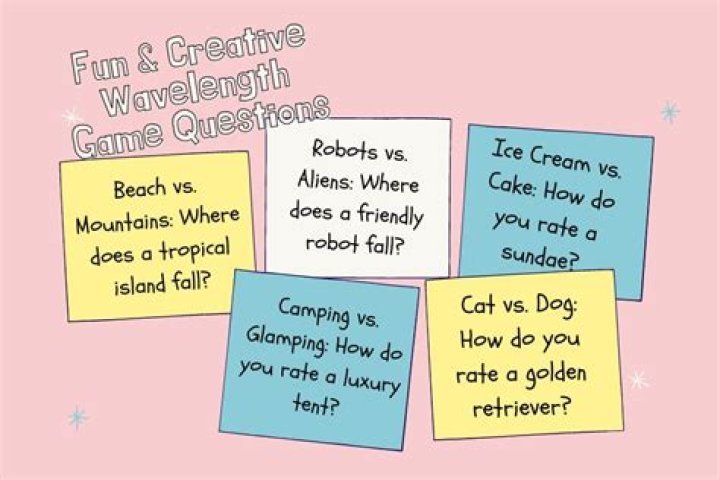 Fun & Creative
Wavelength
Game Questions
Beach vs.
Mountains: Where
does a tropical
island fall?
Robots vs.
Aliens: Where
does a friendly
robot fall?
Ice Cream vs.
Cake: How do
you rate a
sundae?
Camping vs.
Glamping: How do
you rate a luxury
tent?
Cat vs. Dog:
How do you
rate a golden
retriever?